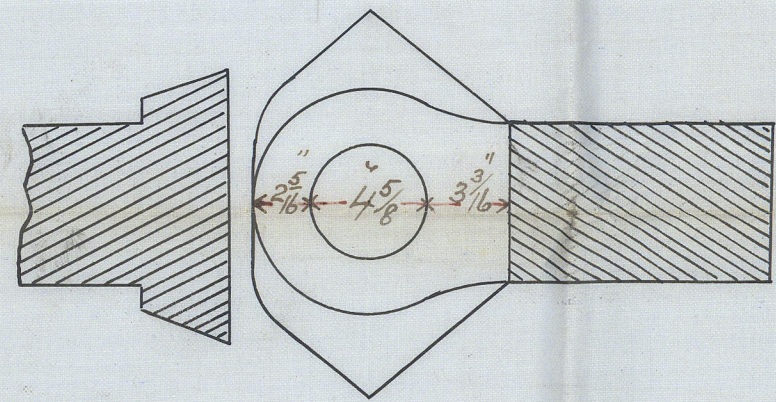 2 5/16" 4 5/8" 3 3/16"